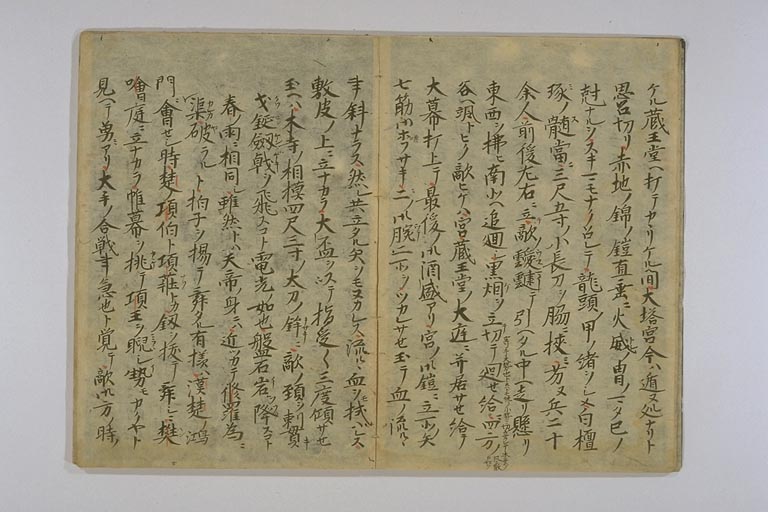 ケル蔵王堂ヘ打テカヽリケル間大塔宮今ハ遁ヌ処ナリト
思召切リ赤地ノ錦ノ鎧直垂ニ火威ノ冑ノマタ巳ノ
尅ナルヲスキマモナクメサレテ龍頭甲ノ緒ヲシメ白檀
琢ノ髄當ニ三尺五寸小長刀ヲ脇ニ挟ミ劣ヌ兵二十
余人前後左右ニ立敵靉靆テ引ヘタル中ヘ走リ懸リ
東西ヲ拂ヒ南北ヘ追廻シ黒烟ヲ立切テ廻セ給 四方ノ
谷ヘ颯トヒク敵ヒケハ宮蔵王堂ノ大庭ニ並居サセ給テ
大幕打上テ最後ノ御酒盛アリ宮ノ御鎧ニ立所ノ矢
七筋御ホウサキ二ノ御腕二ヶ所ツカレサセ玉テ血ノ流ルヽ
事斜ナラス然レ共立タル矢ヲモヌカレス流ルヽ血ヲモ拭ハレス
敷皮ノ上ニ立ナカラ大盃ヲ以テ指受々三度傾サセ
玉ヘハ木寺ノ相模四尺三寸ノ太刀ノ鋒ニ敵ノ頚ヲ 貫
戈鋋劔戟ヲ飛スコト電光ノ如也盤石岩ヲ降スコト
春ノ雨ニ相同シ雖然トハ天帝ノ身ニ近ツカテ修羅為ニ
渠破ラルト拍子ヲ揚テ舞タル有様ハ漢楚ノ鴻
門ニ會セシ時楚ノ項伯ト項荘トカ釼ヲ抜テ舞シニ樊
噲庭ニ立ナカラ帷幕ヲ挑テ項王ヲ睨シ勢モカクヤト
見ヘテ勇アリ大手ノ合戦事急也ト覚テ敵御方ノ時ノ